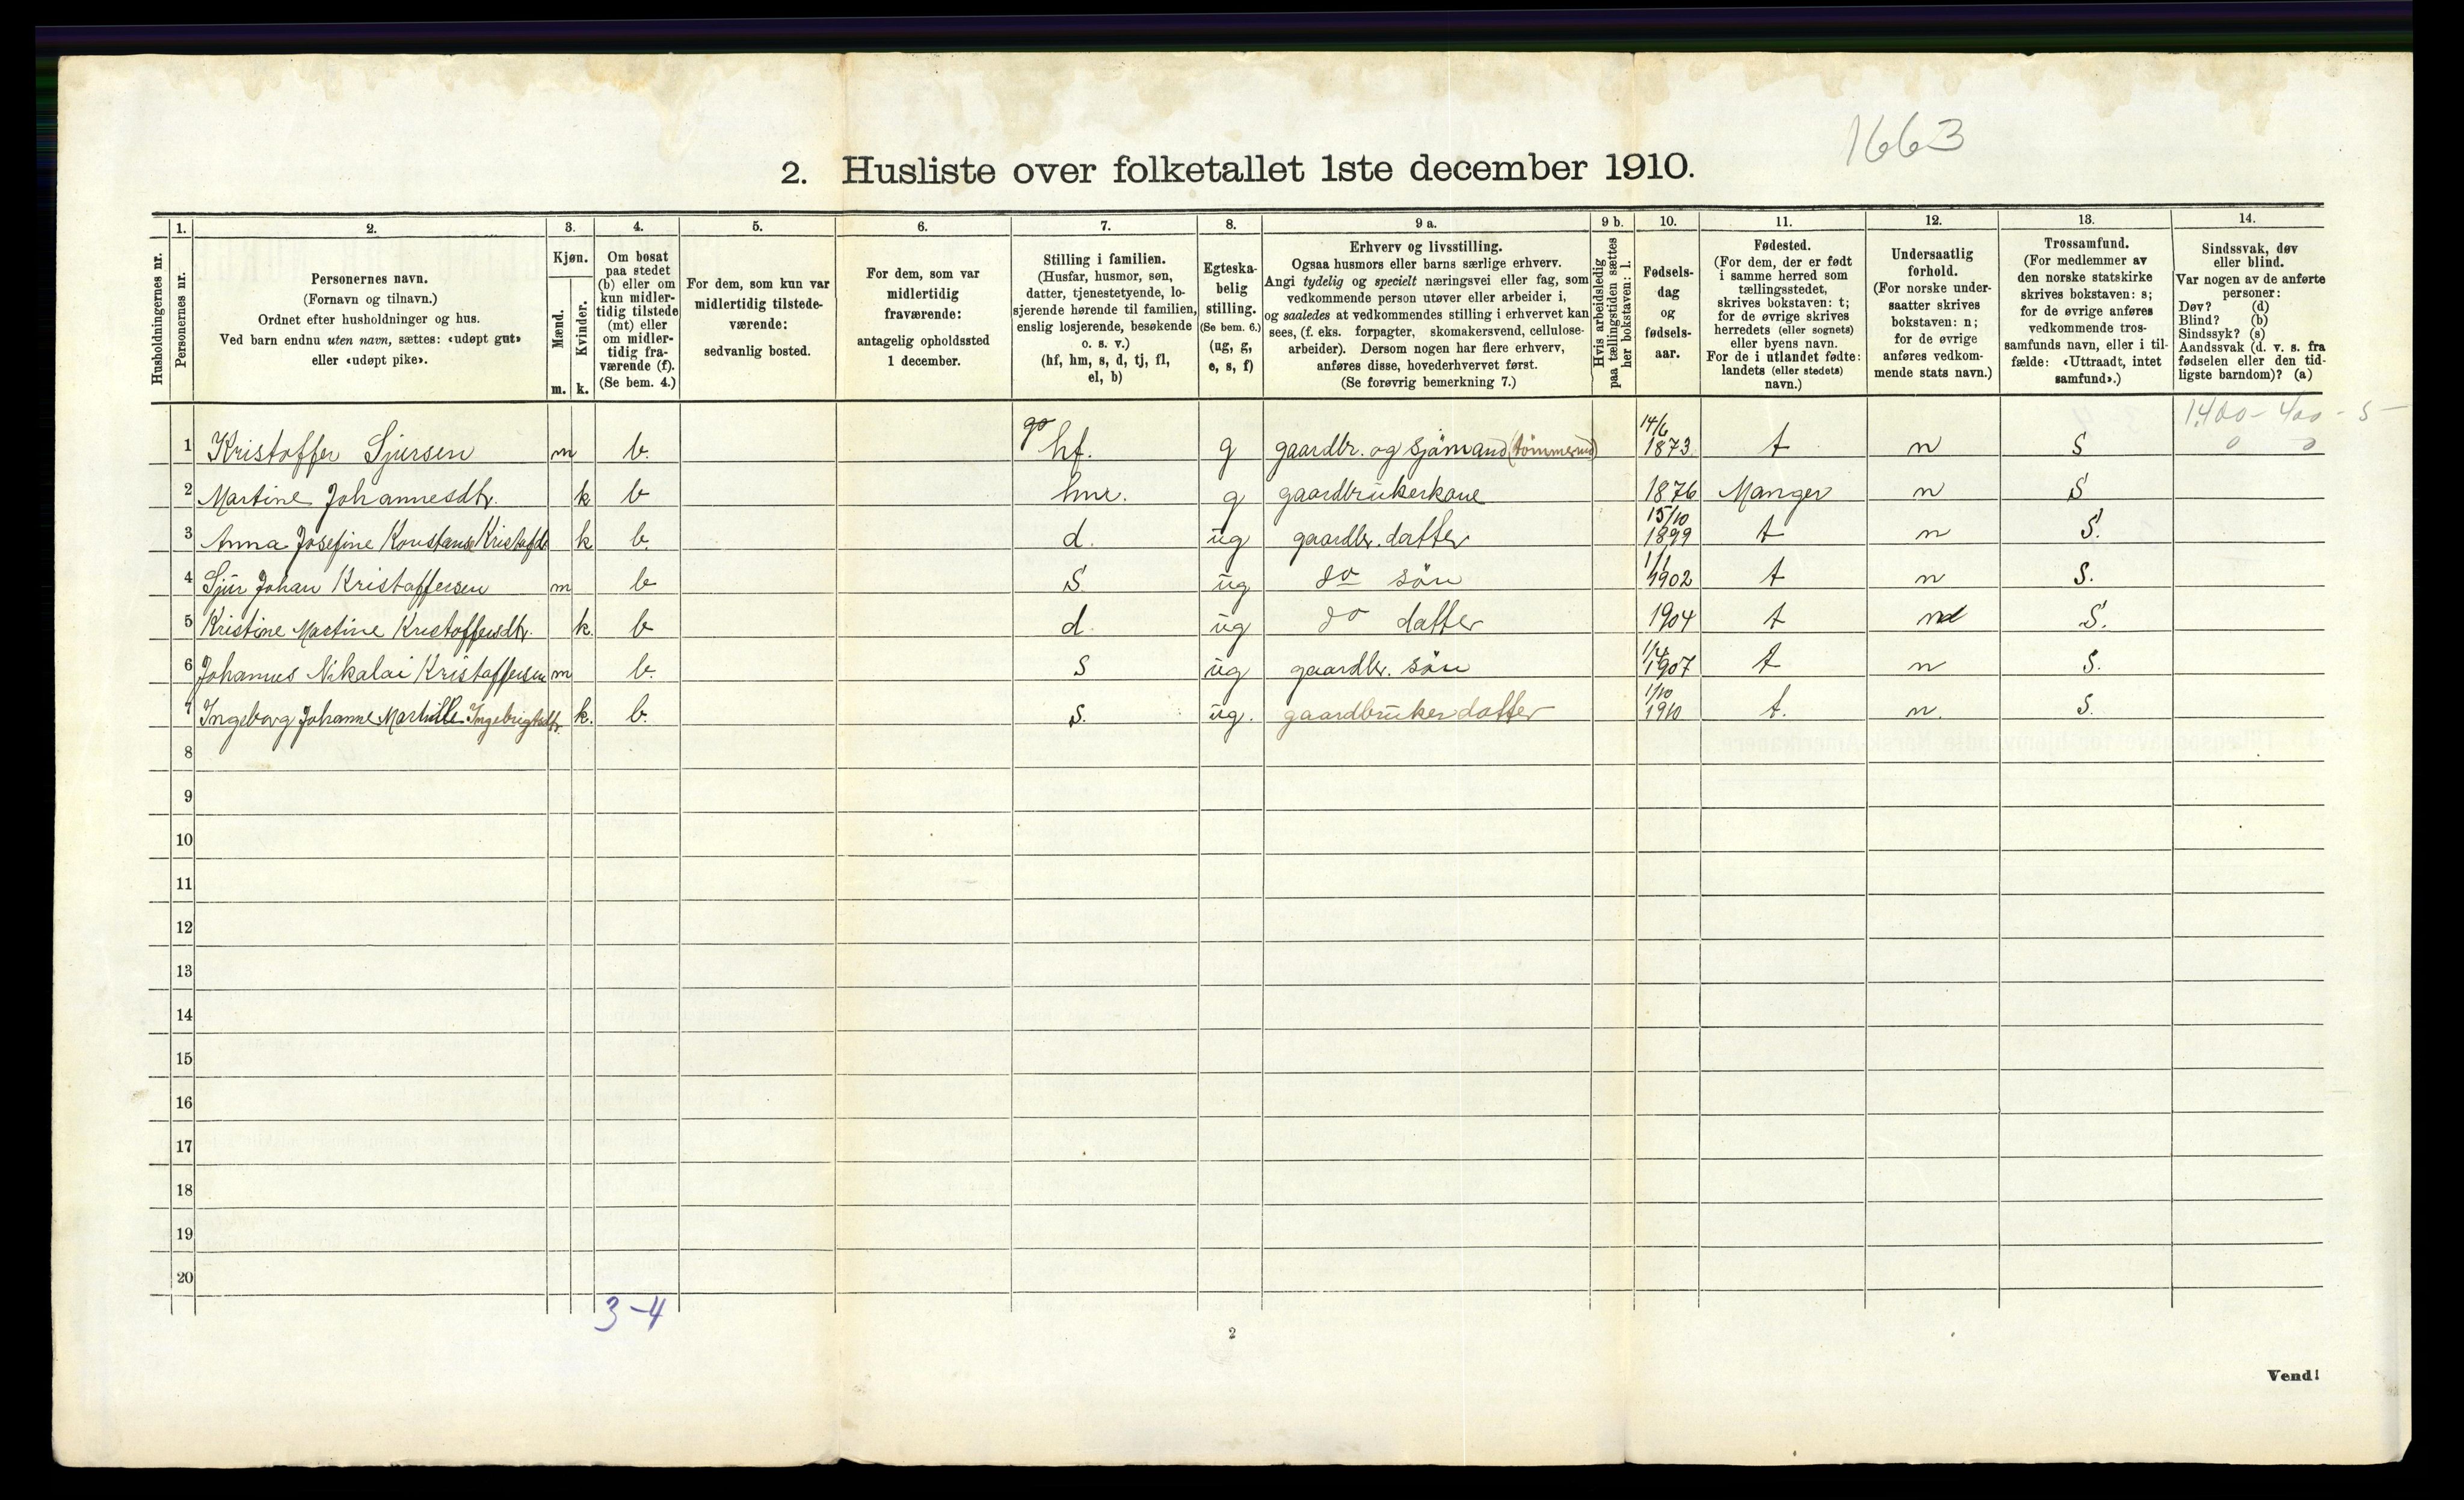 1663
2. Husliste over folketallet 1ste december 1910.
Husholdningernes nr.
1. Personernes nr.
2. Personernes navn.
(Fornavn og tilnavn.)
Ordnet efter husholdninger og hus.
Ved barn endnu uten navn, sættes: «udøpt gut»
eller «udøpt pike».
3. Kjøn.
Mænd. m.
Kvinder. k.
4. Om bosat
paa stedet
(b) eller om
kun midler-
tidig tilstede
(mt) eller
om midler-
tidig fra-
værende (f).
(Se bem. 4.)
5. For dem, som kun var
midlertidig tilstede-
værende:
sedvanlig bosted.
6. For dem, som var
midlertidig
fraværende:
antagelig opholdssted
1 december.
7. Stilling i familien.
(Husfar, husmor, søn,
datter, tjenestetyende, lo-
sjerende hørende til familien,
enslig losjerende, besøkende
o. s. v.)
(hf, hm, s, d, tj, fl,
el, b)
8. Egteska-
belig
stilling.
(Se bem. 6.)
(ug, g,
e, s, f)
9 a. Erhverv og livsstilling.
Ogsaa husmors eller barns særlige erhverv.
Angi tydelig og specielt næringsvei eller fag, som
vedkommende person utøver eller arbeider i,
og saaledes at vedkommendes stilling i erhvervet kan
sees, (f. eks. forpagter, skomakersvend, cellulose-
arbeider). Dersom nogen har flere erhverv,
anføres disse, hovederhvervet først.
(Se forøvrig bemerkning 7.)
9 b. Hvis arbeidsledig
paa tællingstiden sættes
her bokstaven: l.
10. Fødsels-
dag
og
fødsels-
aar.
11. Fødested.
(For dem, der er født
i samme herred som
tællingsstedet,
skrives bokstaven: t;
for de øvrige skrives
herredets (eller sognets)
eller byens navn.
For de i utlandet fødte:
landets (eller stedets)
navn.)
12. Undersaatlig
forhold.
(For norske under-
saatter skrives
bokstaven: n;
for de øvrige
anføres vedkom-
mende stats navn.)
13. Trossamfund.
(For medlemmer av
den norske statskirke
skrives bokstaven: s;
for de øvrige anføres
vedkommende tros-
samfunds navn, eller i til-
fælde: «Uttraadt, intet
samfund».)
14. Sindssvak, døv
eller blind.
Var nogen av de anførte
personer:
Døv? (d)
Blind? (b)
Sindssyk? (s)
Aandssvak (d. v. s. fra
fødselen eller den tid-
ligste barndom)? (a)
1400 - 400 - 5 -
1 Kristoffer Sjursen m b. hf. g gaardbr. og sjömand 14/6 1873. t n S
2 Martine Johannesdtr. k b hm. g gaardbrukerkone 1876 Manger n S
3 Anna Josefine Konstanse Kristofdt k b. d. ug gaardbr. datter 15/10 1899 t n S.
4 Sjur Johan Kristoffersen m b S ug do sön 1/1 1902 t n S.
5 Kristine Martine Kristoffersdtr. k. b d. ug do datter 1904 t n S.
6 Johannes Nikolai Kristoffersen m b. S ug gaardbr. sön 1/4 1907 t n S.
7 Ingeborg Johanne Mathille Ingebrigtsdtr. k. b. S. ug. gaardbruker datter 1/10 1910 t. n. S.
8
9
10
11
12
13
14
15
16
17
18
19
20
3-4
2
Vend!